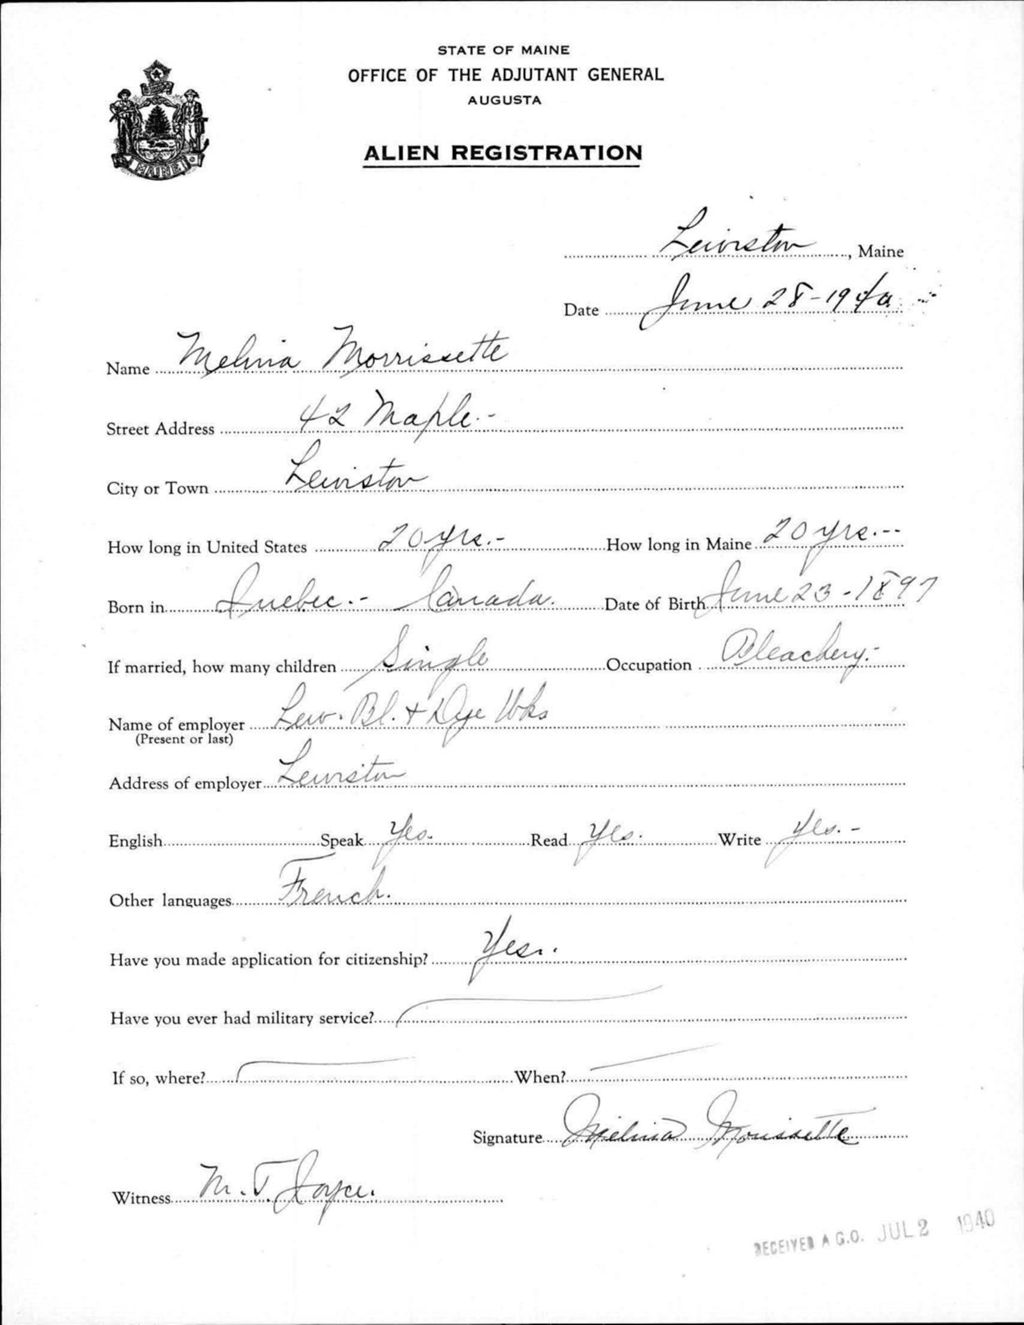 STATE OF MAINE
OFFICE OF THE ADJUTANT GENERAL
AUGUSTA
ALIEN REGISTRATION
MAINE
Lewiston, Maine
Date June 28-1940
Name Melina Morrissette
Street Address 42 Maple.-
City or Town Lewiston
How long in United States 20 yrs.- How long in Maine 20 yrs.--
Born in Quebec.- Canada. Date of Birth June 23-1897
If married, how many children Single Occupation Bleachery.-
Name of employer Lew. Bl. + Dye Wks
(Present or last)
Address of employer Lewiston
English Speak Yes. Read Yes. Write Yes.-
Other languages French.
Have you made application for citizenship? Yes.
Have you ever had military service?
If so, where? When?
Signature Melina Morissette
Witness M. T. Joyce.
RECEIVED A.G.O. JUL 2 1940